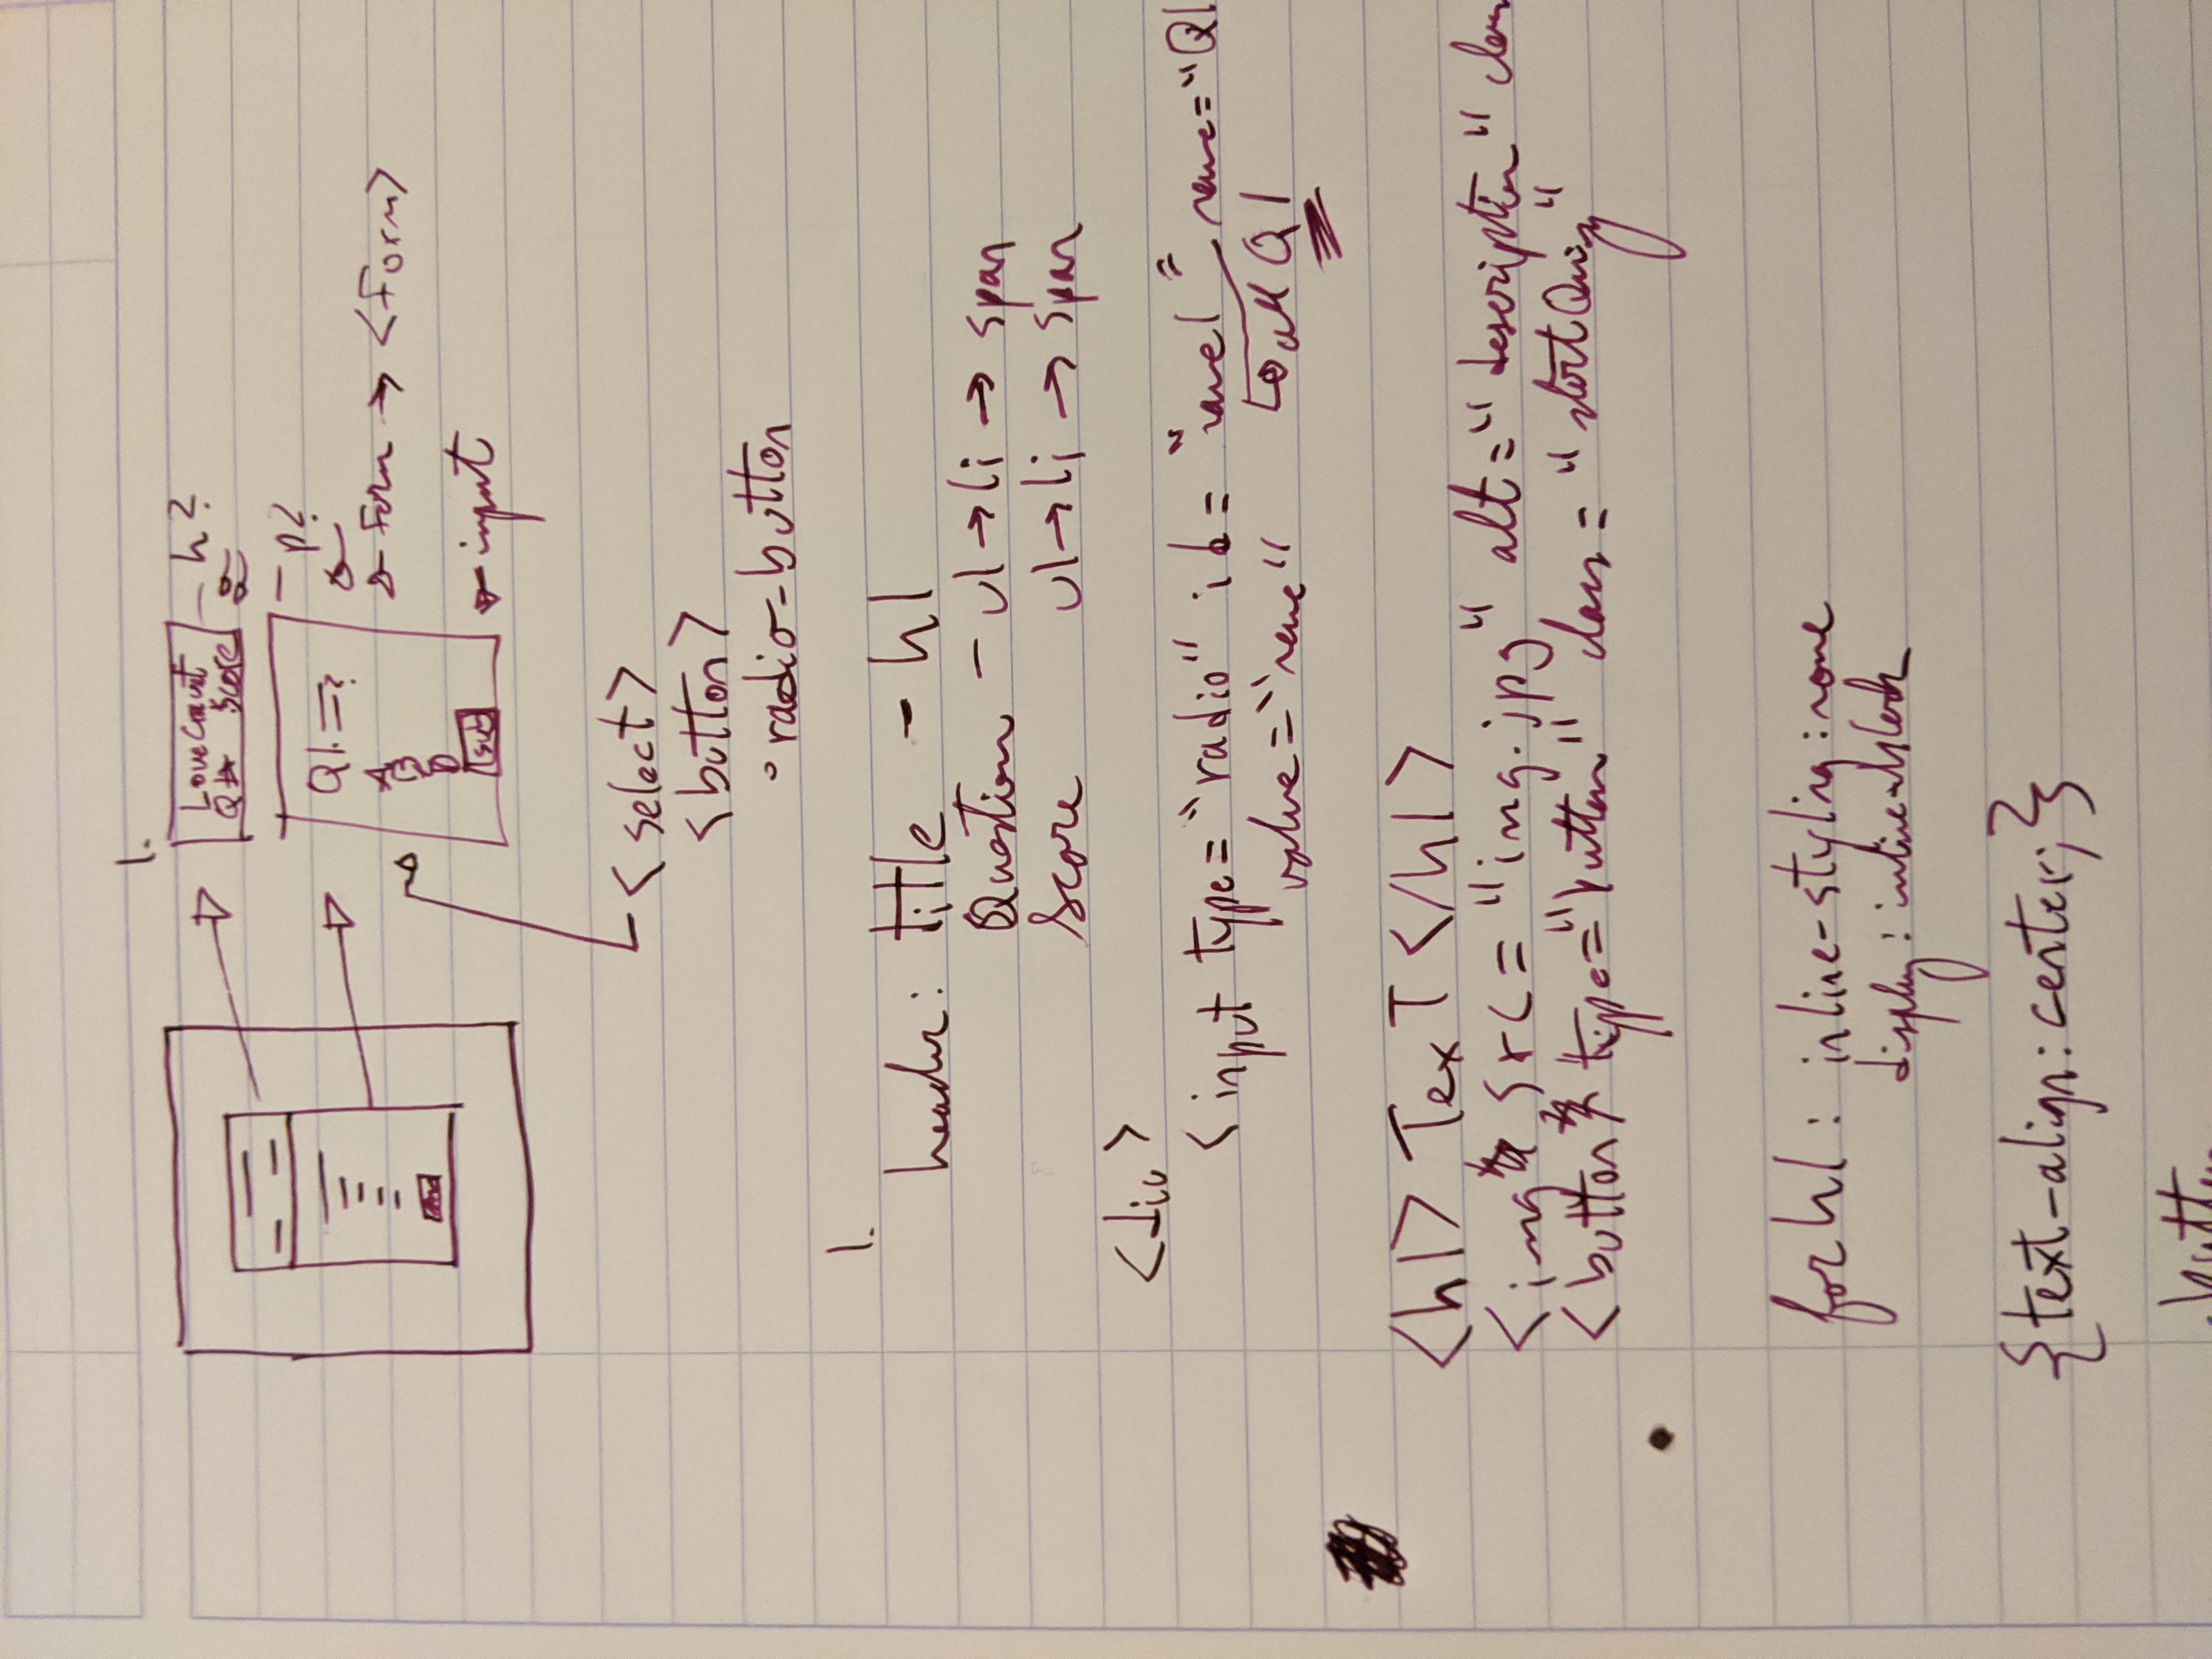 1.
LoveCraut - h?
Q# Score
- p?
Q1. =?
A Form → <Form>
B
D
sub input
<select>
<button>
◦ radio-button
1.
header: title - h1
Question - ul → li → span
Score ul → li → span
<div>
<input type = "radio" id = name = "Q1
value = "
all Q1
<h1> Text </h1>
<img src = "img.jpg" alt = "description" class
<button type = "button" class = "startQuiz"
for h1 : inline-styling : none
display : inline-block
{text-align: center;}
button